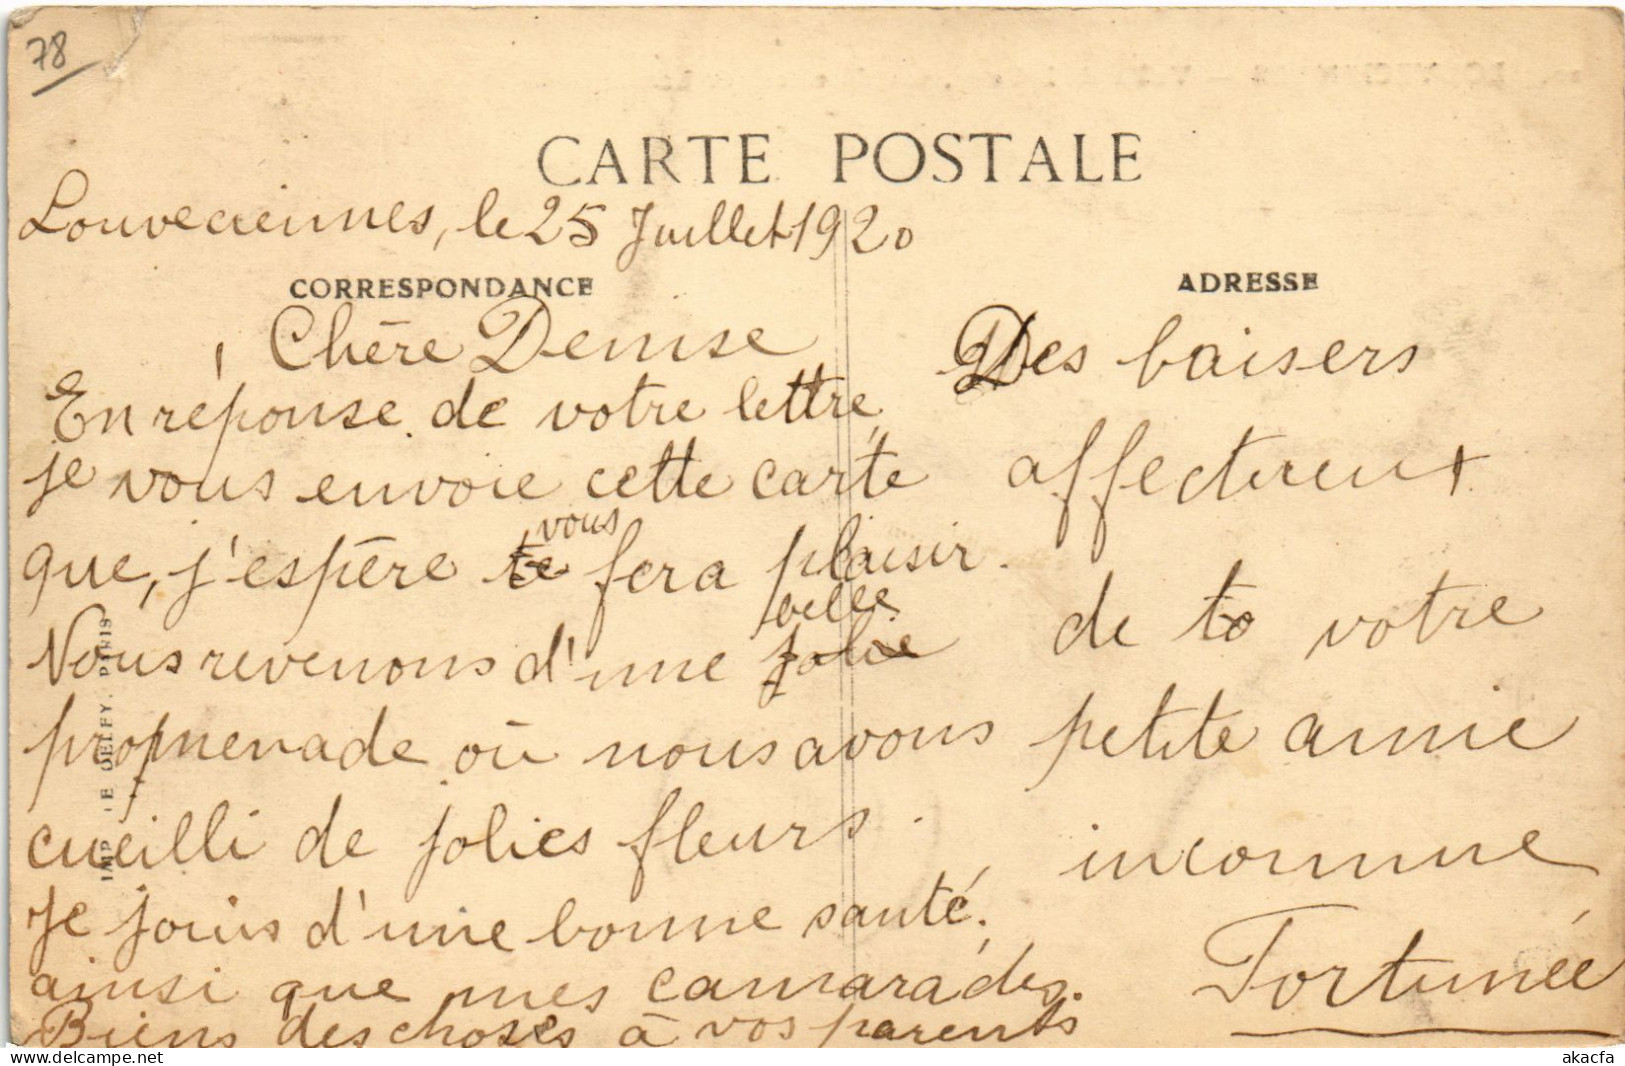 78
CARTE POSTALE
Louveciennes, le 25 Juillet 1920
CORRESPONDANCE
Chère Denise
En réponse de votre lettre,
je vous envoie cette carte
que, j'espère te vous fera plaisir.
Nous revenons d'une jolie belle
promenade où nous avons
cueilli de jolies fleurs.
Je jouis d'une bonne santé,
ainsi que mes camarades.
Biens des choses à vos parents
ADRESSE
Des baisers
affectueux
de ta votre
petite amie
inconnue
Fortunée
IMP. E. DELEY. PARIS
delcampe.net
akacfa